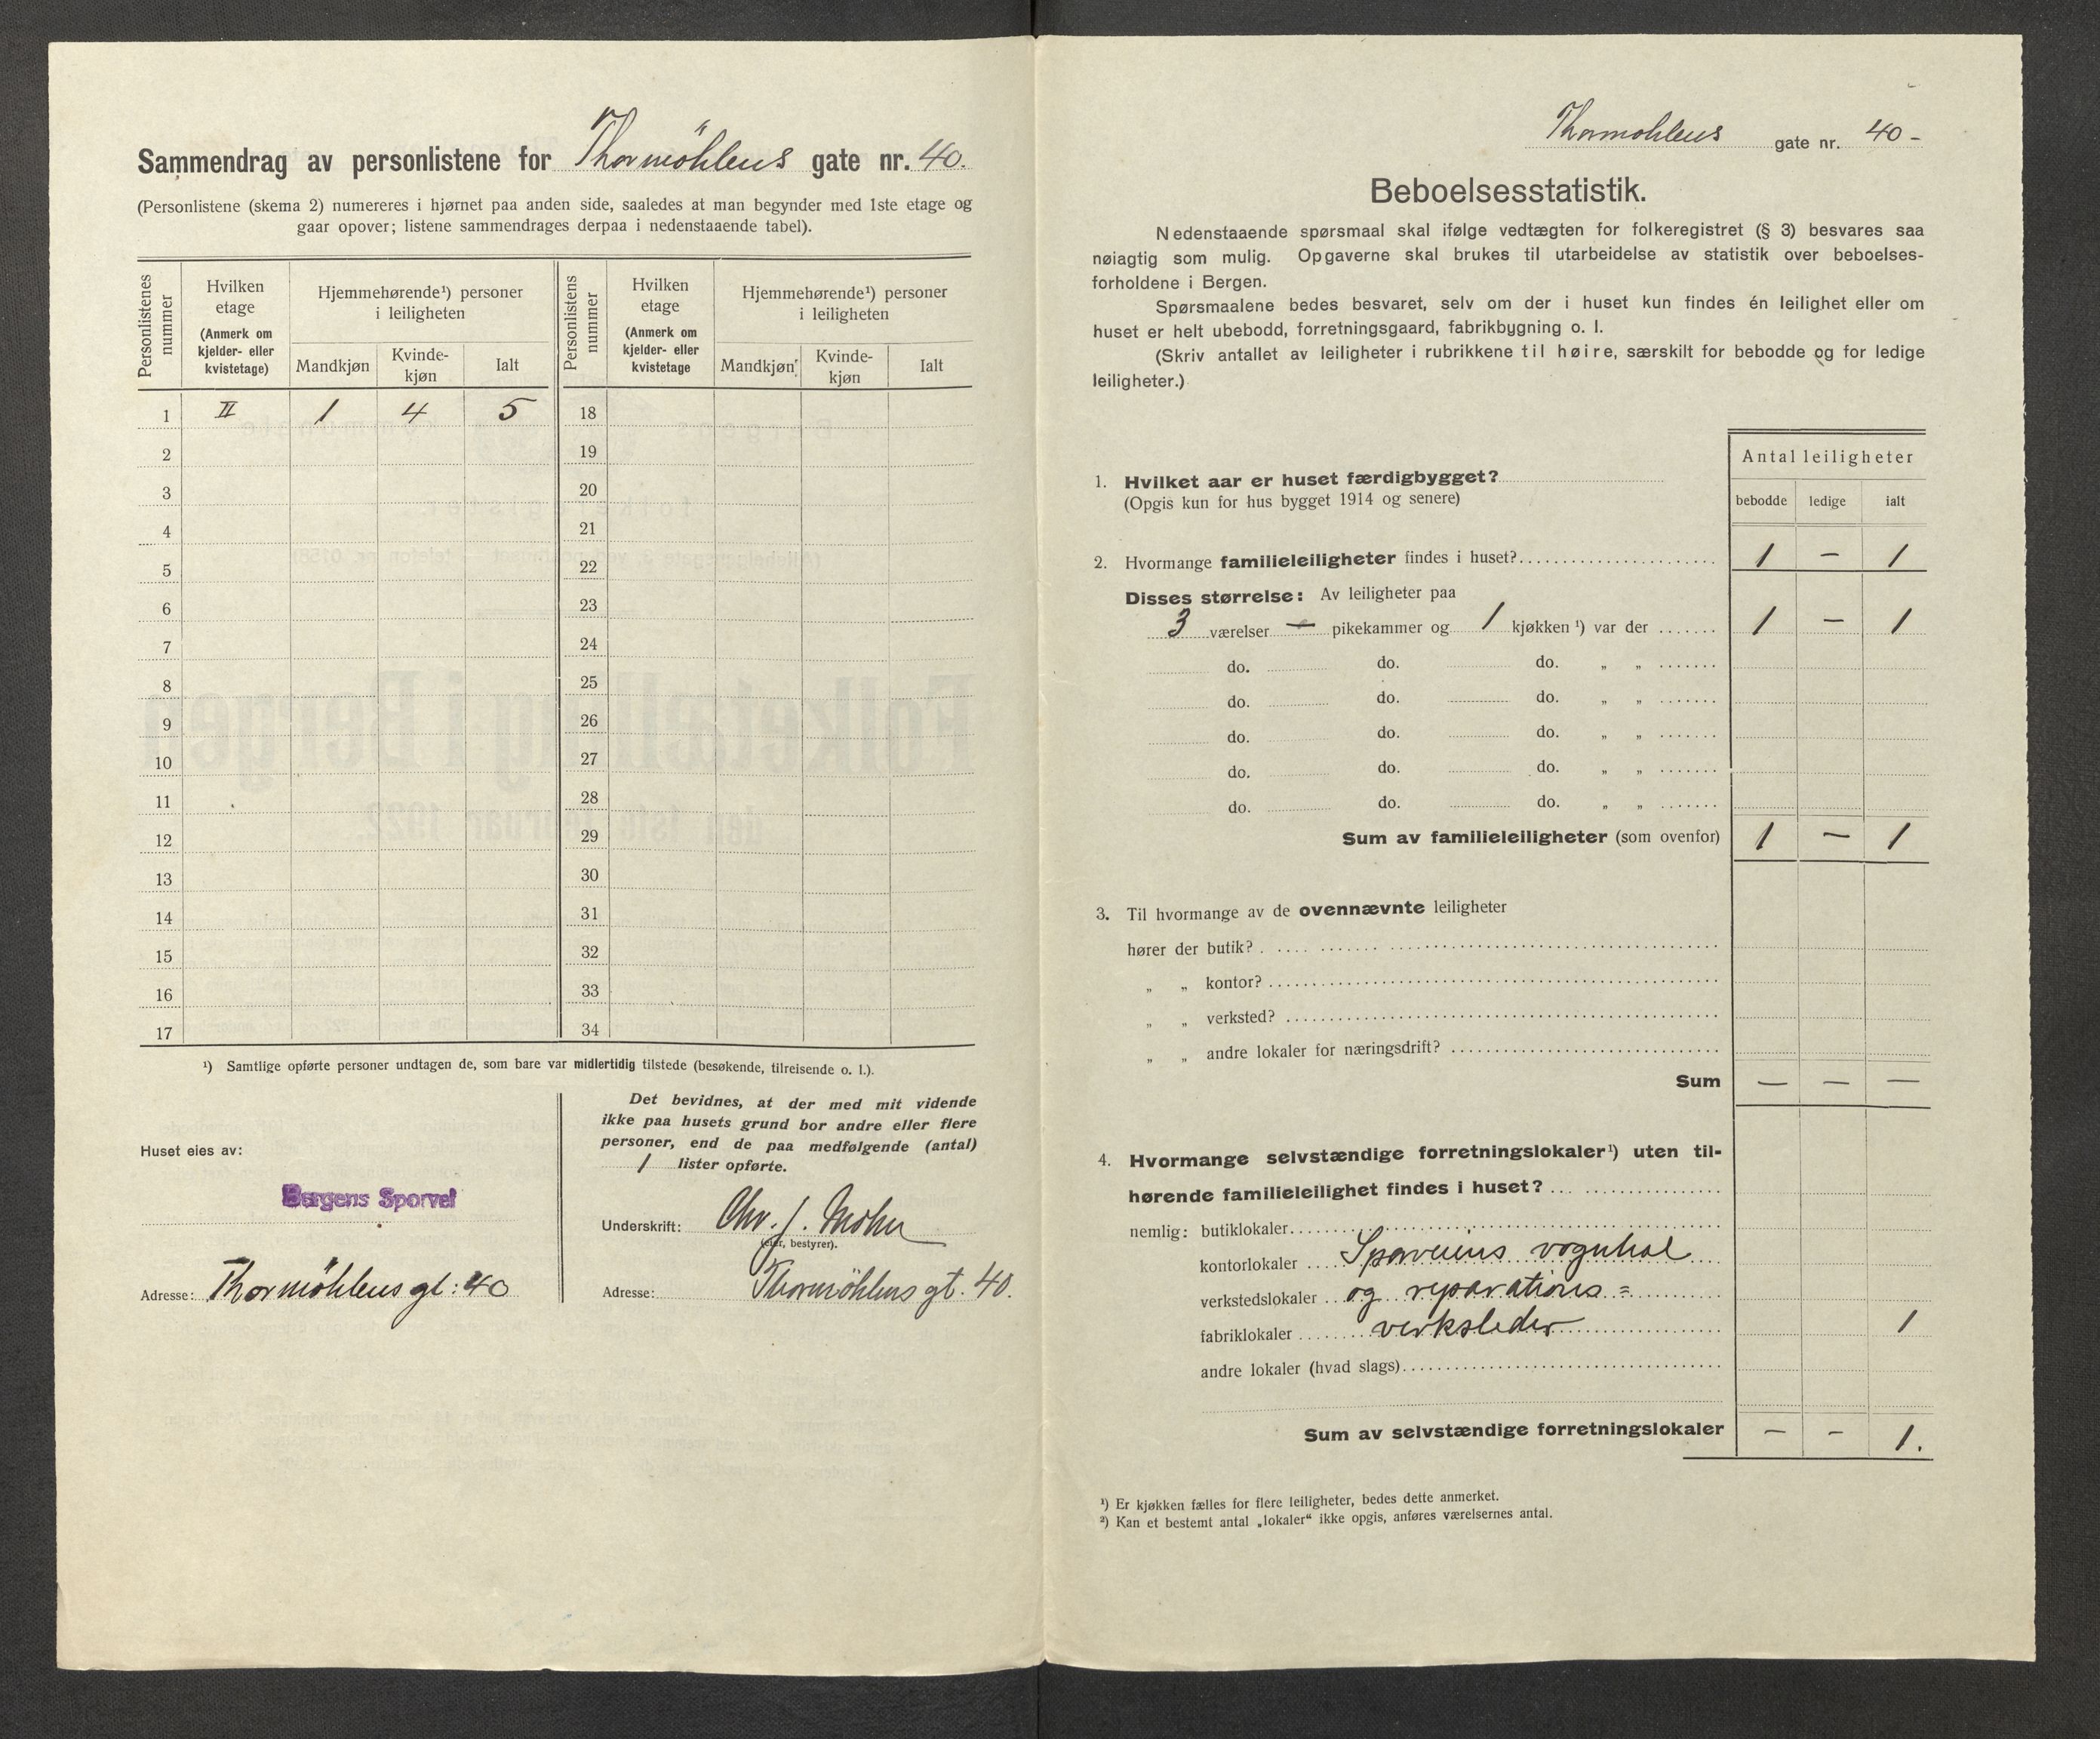 Sammendrag av personlistene for Thormöhlens gate nr. 40.
(Personlistene (skema 2) numereres i hjørnet paa anden side, saaledes at man begynder med 1ste etage og
gaar opover; listene sammendrages derpaa i nedenstaaende tabel).
Personlistenes nummer
Hvilken etage (Anmerk om kjelder- eller kvistetage)
Hjemmehørende¹) personer i leiligheten
Mandkjøn
Kvinde-kjøn
Ialt
Personlistens nummer
Hvilken etage (Anmerk om kjelder- eller kvistetage
Hjemmehørende¹) personer i leiligheten
Mandkjøn
Kvinde-kjøn
Ialt
1 II 1 4 5 18
2 19
3 20
4 21
5 22
6 23
7 24
8 25
9 26
10 27
11 28
12 29
13 30
14 31
15 32
16 33
17 34
¹) Samtlige opførte personer undtagen de, som bare var midlertidig tilstede (besøkende, tilreisende o. l.).
Huset eies av:
Bergens Sporvei
Adresse: Thormöhlens gt: 40
Det bevidnes, at der med mit vidende
ikke paa husets grund bor andre eller flere
personer, end de paa medfølgende (antal)
1 lister opførte.
Underskrift: Chr. J. Mohn
(eier, bestyrer).
Adresse: Thormöhlens gt. 40.
Thormøhlens gate nr. 40 -
Beboelsesstatistik.
Nedenstaaende spørsmaal skal ifølge vedtægten for folkeregistret (§ 3) besvares saa
nøiagtig som mulig. Opgaverne skal brukes til utarbeidelse av statistik over beboelses-
forholdene i Bergen.
Spørsmaalene bedes besvaret, selv om der i huset kun findes én leilighet eller om
huset er helt ubebodd, forretningsgaard, fabrikbygning o. l.
(Skriv antallet av leiligheter i rubrikkene til høire, særskilt for bebodde og for ledige
leiligheter.)
Antal leiligheter
bebodde ledige ialt
1. Hvilket aar er huset færdigbygget?
(Opgis kun for hus bygget 1914 og senere)
2. Hvormange familieleiligheter findes i huset? 1 — 1
Disses størrelse: Av leiligheter paa
3 værelser — pikekammer og 1 kjøkken ¹) var der 1 — 1
do. do. do. „ „
do. do. do. „ „
do. do. do. „ „
do. do. do. „ „
do. do. do. „ „
Sum av familieleiligheter (som ovenfor) 1 — 1
3. Til hvormange av de ovennævnte leiligheter
hører der butik?
„ „ kontor?
„ „ verksted?
„ „ andre lokaler for næringsdrift?
Sum — — —
4. Hvormange selvstændige forretningslokaler¹) uten til-
hørende familieleilighet findes i huset?
nemlig: butiklokaler
kontorlokaler Sporveiens vognhal
verkstedslokaler og reparations=
fabriklokaler verksteder 1
andre lokaler (hvad slags)
Sum av selvstændige forretningslokaler — — 1.
¹) Er kjøkken fælles for flere leiligheter, bedes dette anmerket.
²) Kan et bestemt antal „lokaler“ ikke opgis, anføres værelsernes antal.